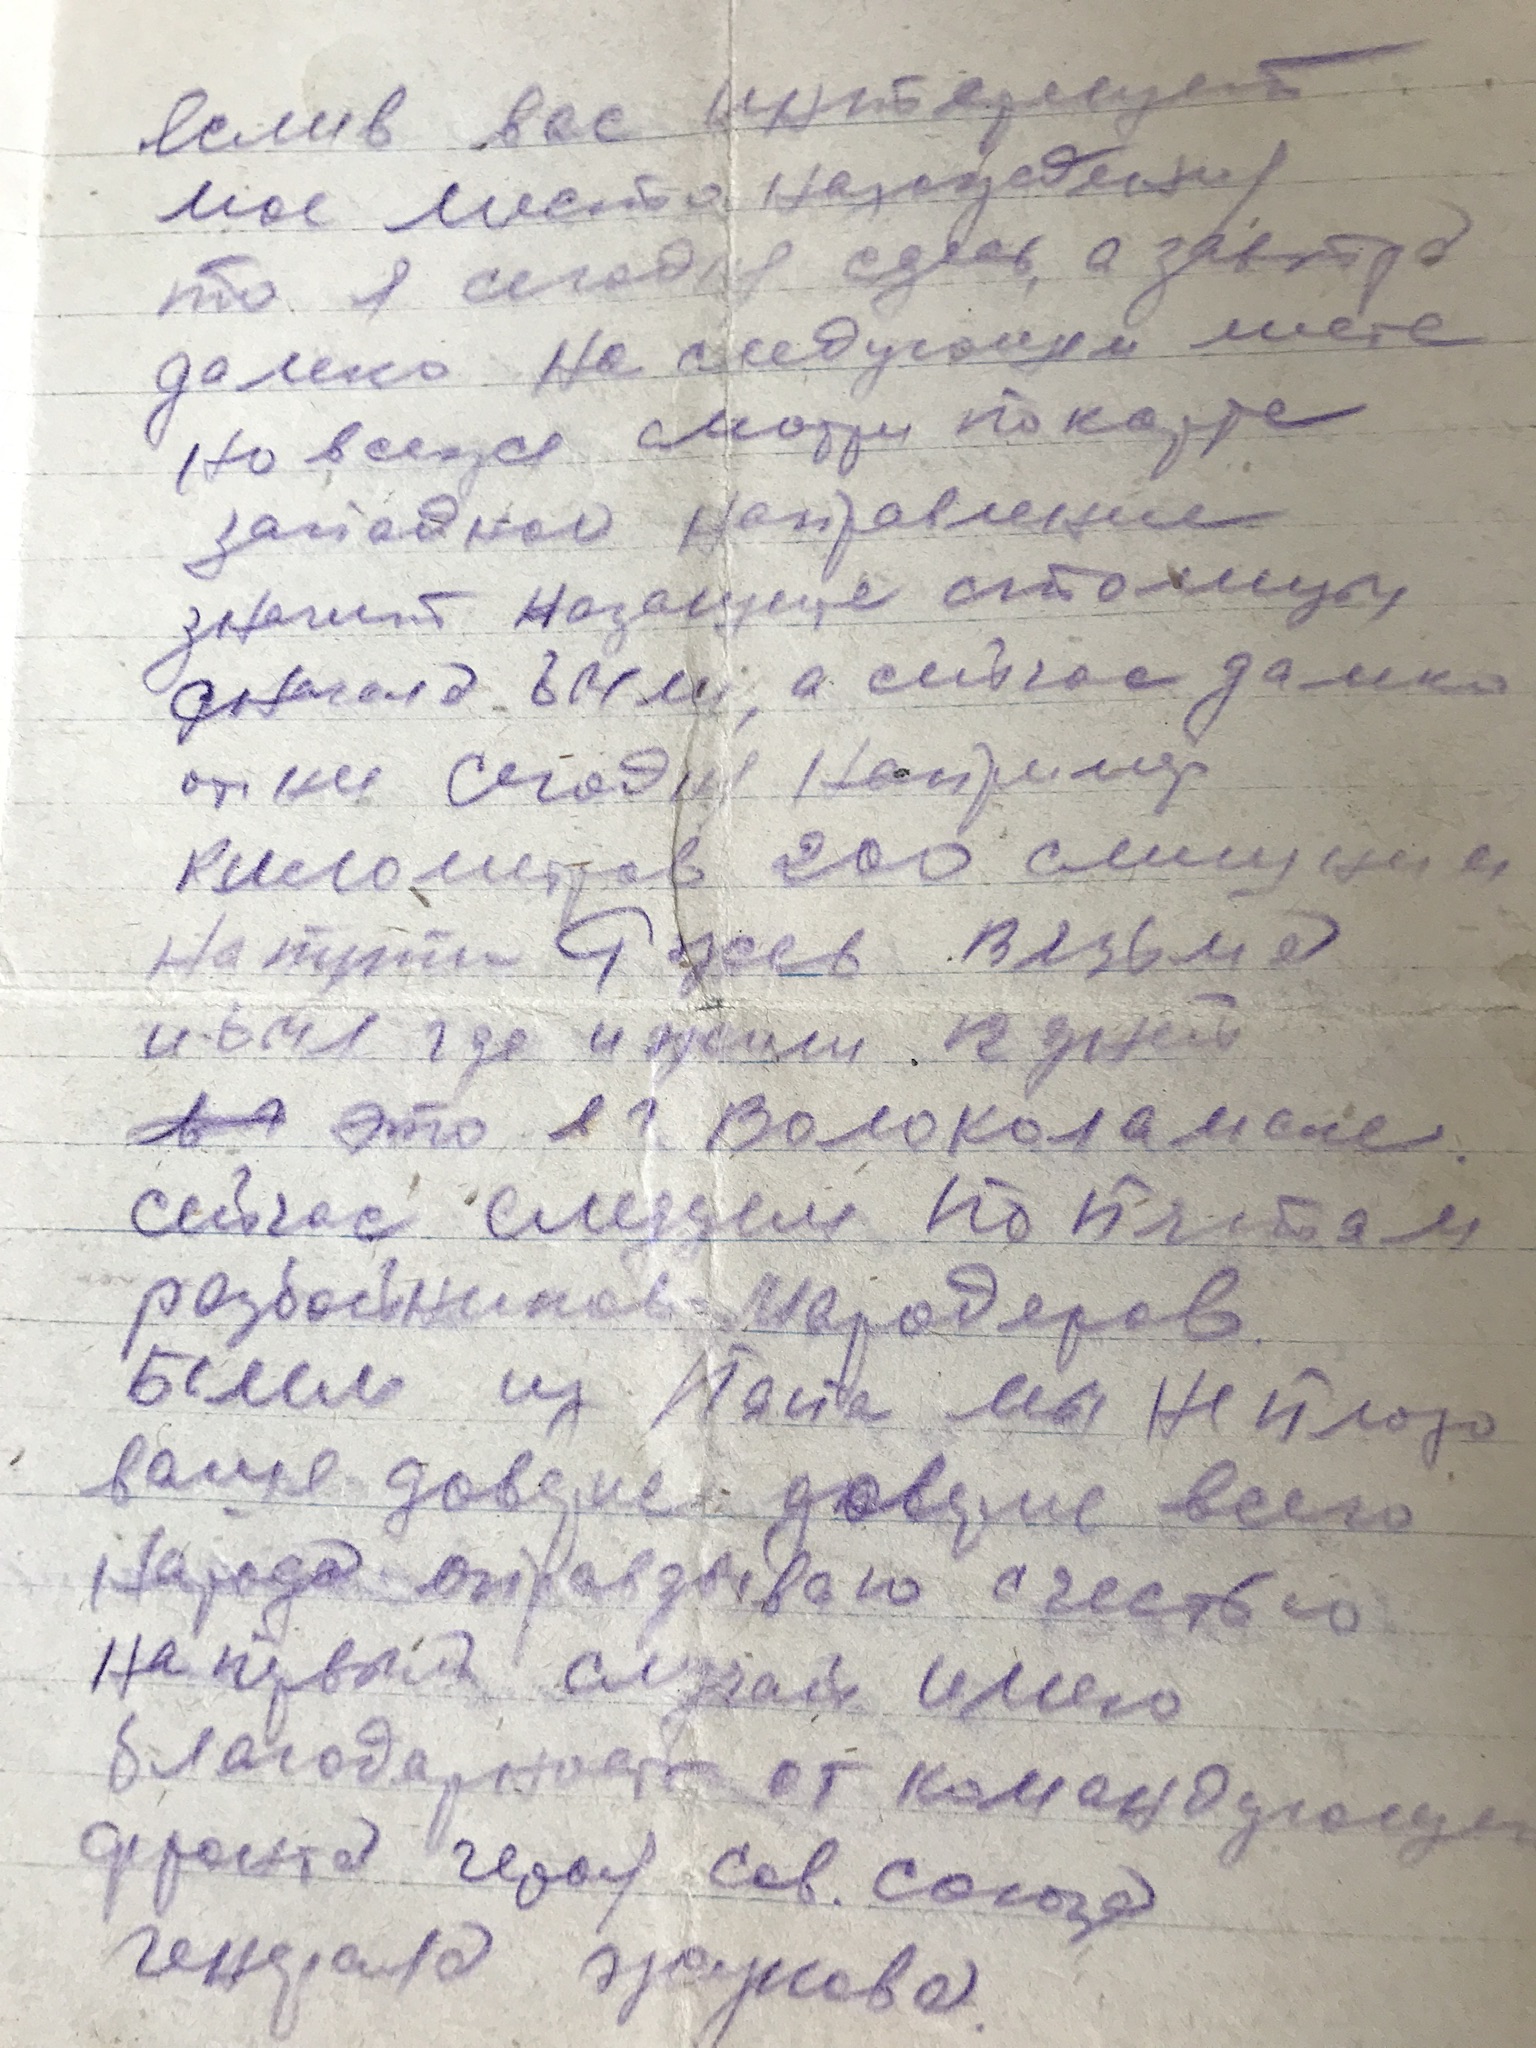 Если в вас интересует
мое место нахождения
то я сегодня сдесь, а завтра
далеко на следующем месте
но всеже смотри по карте
западное направление
значит на защите столицы
сначала были, а сейчас далеко
от ни сегодня например
километров 200 слишним
на пути Ржев Вязьма
и был где и жили 12 дней
это я г Волоколамске.
сейчас следуем по пятам
разбойников-мародеров.
Бьем их Папа мы не плохо
ваше доверие доверие всего
народа оправдываю с честью
на первый случай имею
благодарность от командующего
фронта героя Сов. Союза
генерала Жукова.